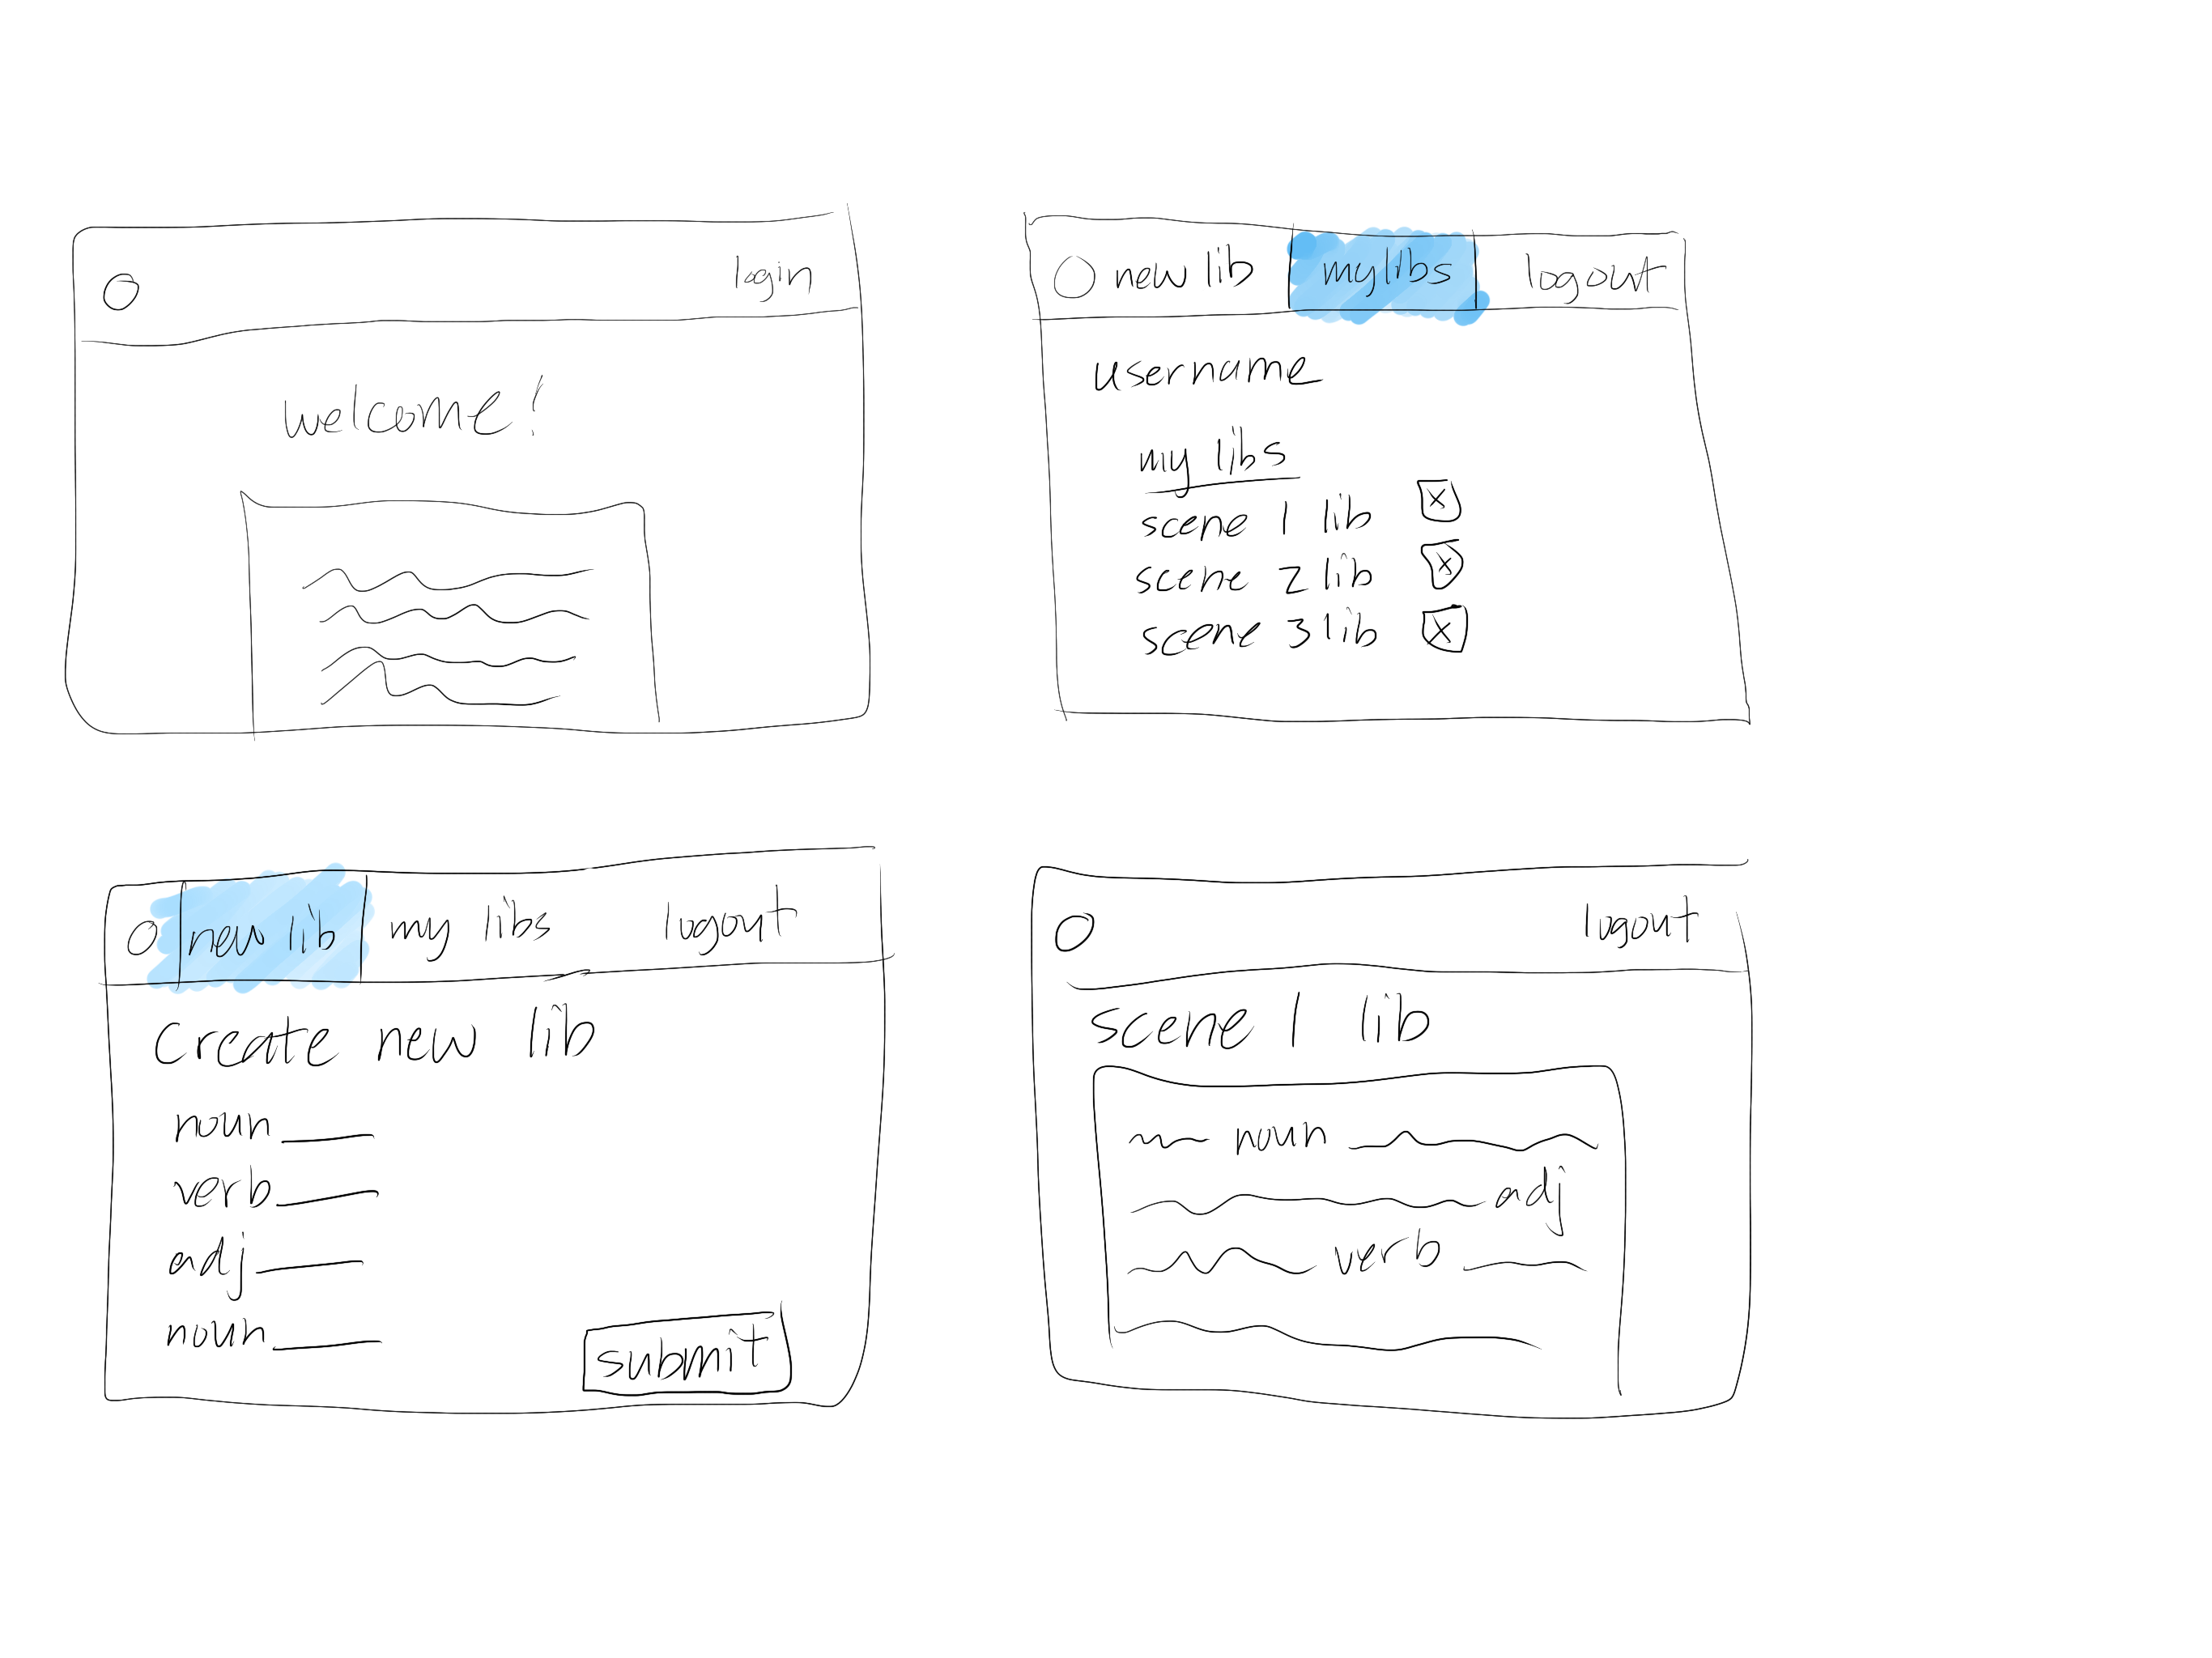 login
welcome!
new lib mylibs logout
username
my libs
scene 1 lib x
scene 2 lib x
scene 3 lib x
new lib my libs logout
Create new lib
noun
verb
adj
noun
submit
logout
scene 1 lib
noun
adj
verb